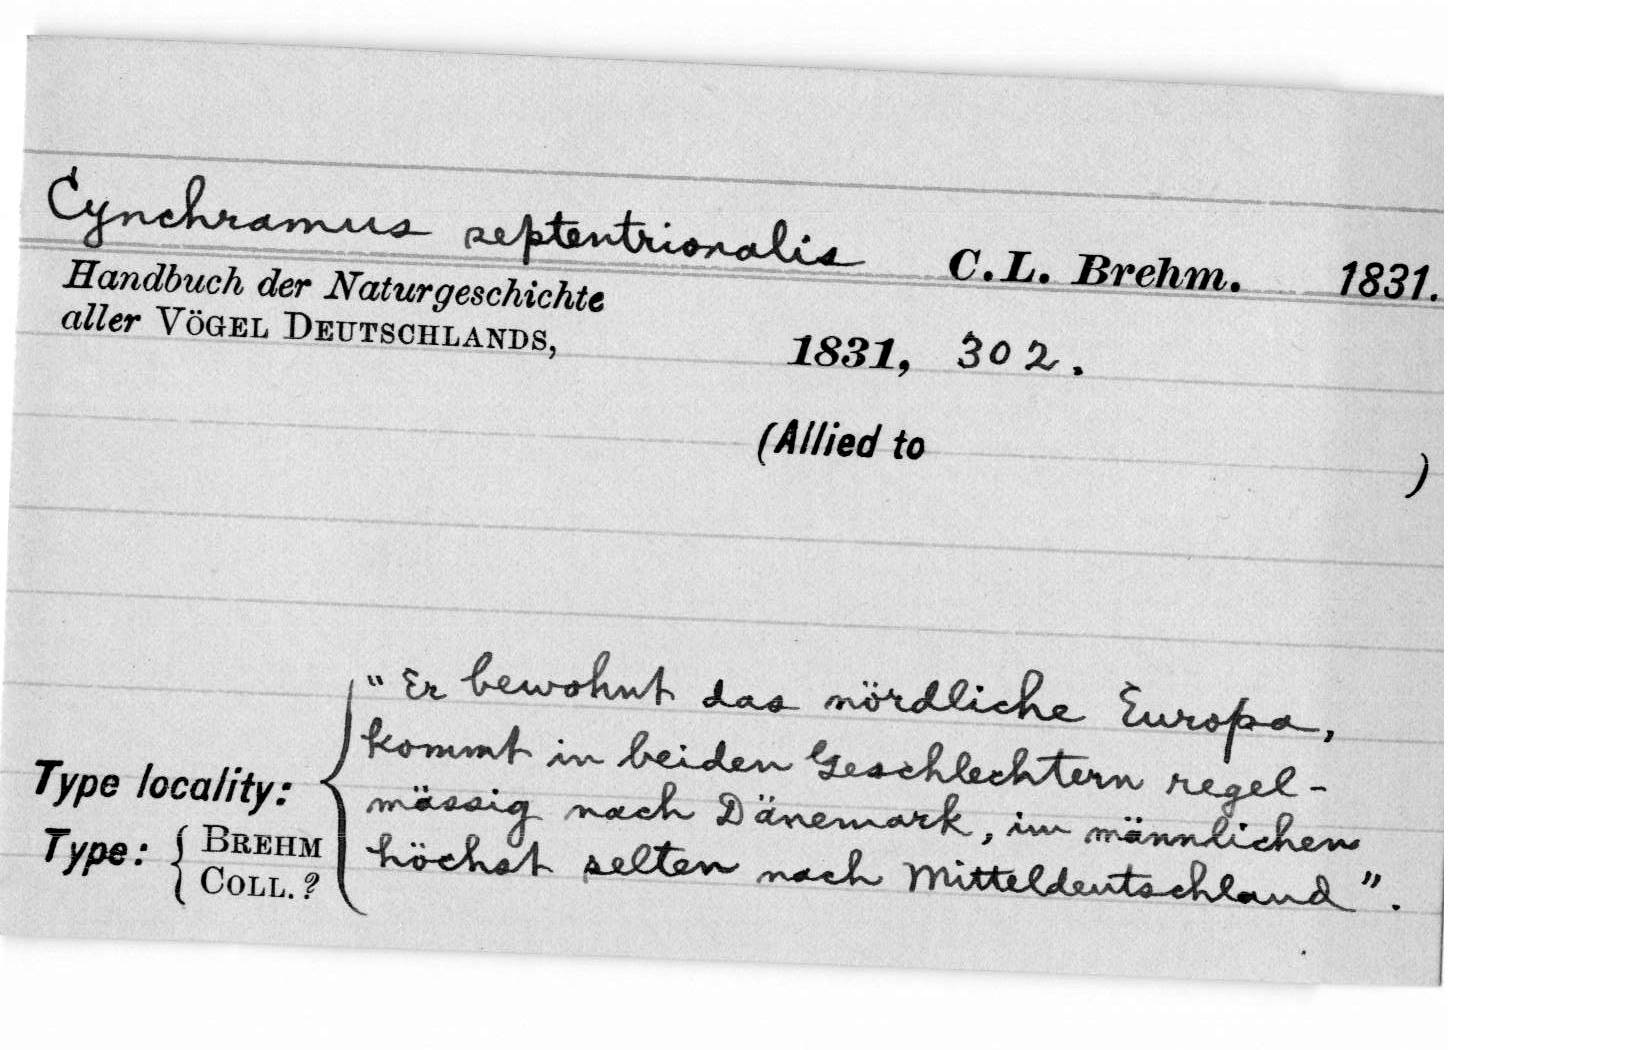 Cynchramus septentrionalis C.L. Brehm. 1831.
Handbuch der Naturgeschichte
aller VÖGEL DEUTSCHLANDS, 1831, 302.
(Allied to )
"Er bewohnt das nördliche Europa,
kommt in beiden Geschlechtern regel-
mässig nach Dänemark, im männlichen
höchst selten nach Mitteldeutschland".
Type locality:
Type: { BREHM
COLL. ?